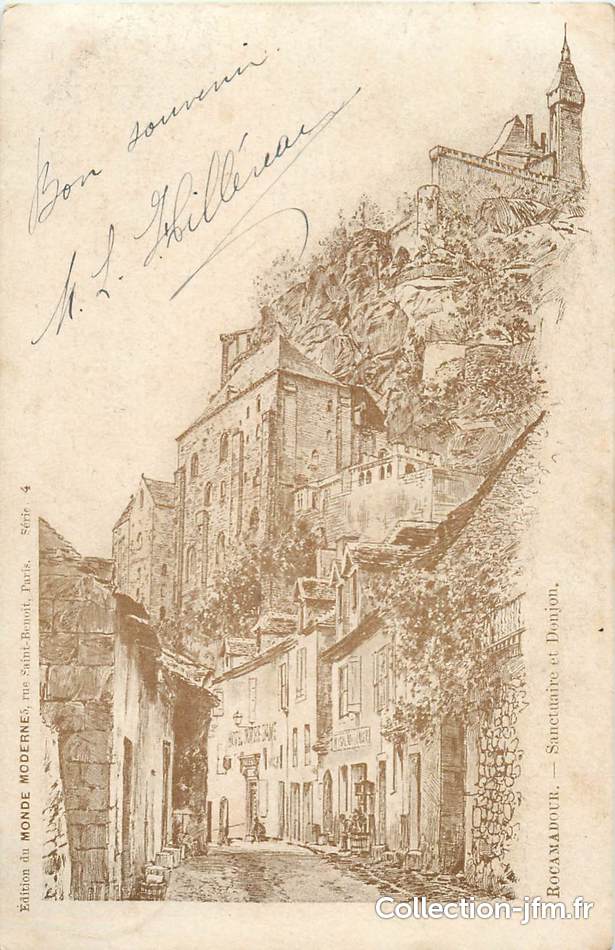 Bon souvenir.
M. L.
HOTEL NOTRE DAME
Edition du MONDE MODERNE, rue Saint-Benoit, Paris. Série 4
ROCAMADOUR. — Sanctuaire et Donjon.
Collection-jfm.fr